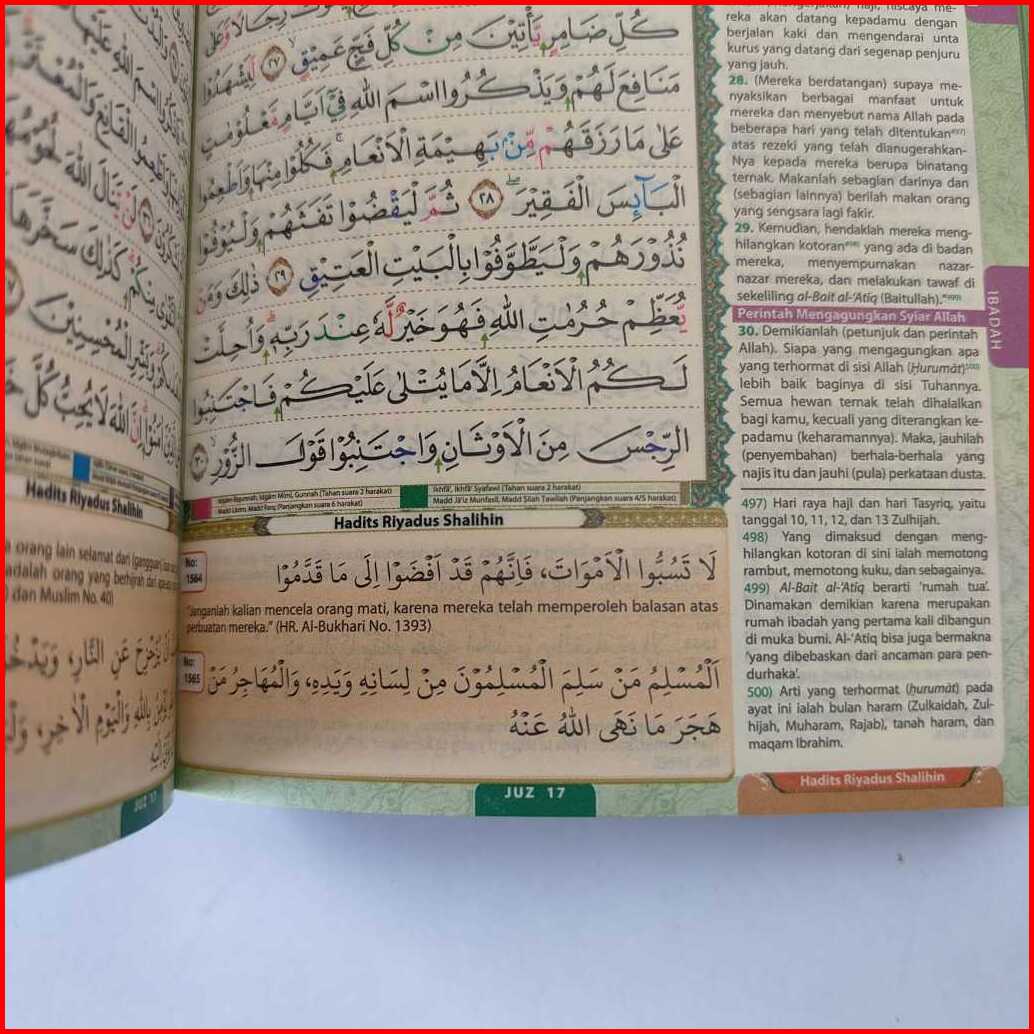 كُلِّ ضَامِرٍ يَّأْتِيْنَ مِنْ كُلِّ فَجٍّ عَمِيْقٍۙ ٢٧ لِّيَشْهَدُوْا
مَنَافِعَ لَهُمْ وَيَذْكُرُوا اسْمَ اللّٰهِ فِيْٓ اَيَّامٍ مَّعْلُوْمٰتٍ
عَلٰى مَا رَزَقَهُمْ مِّنْۢ بَهِيْمَةِ الْاَنْعَامِۚ فَكُلُوْا مِنْهَا وَاَطْعِمُوا
الْبَاۤىِٕسَ الْفَقِيْرَۖ ٢٨ ثُمَّ لْيَقْضُوْا تَفَثَهُمْ وَلْيُوْفُوْا
نُذُوْرَهُمْ وَلْيَطَّوَّفُوْا بِالْبَيْتِ الْعَتِيْقِ ٢٩ ذٰلِكَ وَمَنْ
يُّعَظِّمْ حُرُمٰتِ اللّٰهِ فَهُوَ خَيْرٌ لَّهٗ عِنْدَ رَبِّهٖۗ وَاُحِلَّتْ
لَكُمُ الْاَنْعَامُ اِلَّا مَا يُتْلٰى عَلَيْكُمْ فَاجْتَنِبُوا
الرِّجْسَ مِنَ الْاَوْثَانِ وَاجْتَنِبُوْا قَوْلَ الزُّوْرِۙ ٣٠
Ikhfā', Ikhfā Syafawi (Tahan suara 2 harakat)
Madd Jā'iz Munfasil, Madd Silah Tawilah (Panjangkan suara 4/5 harakat)
Hadits Riyadus Shalihin
No:
1564
لَا تَسُبُّوا الْاَمْوَاتَ، فَاِنَّهُمْ قَدْ اَفْضَوْا اِلَى مَا قَدَّمُوْا
"Janganlah kalian mencela orang mati, karena mereka telah memperoleh balasan atas
perbuatan mereka." (HR. Al-Bukhari No. 1393)
No:
1565
اَلْمُسْلِمُ مَنْ سَلِمَ الْمُسْلِمُوْنَ مِنْ لِسَانِهِ وَيَدِهِ، وَالْمُهَاجِرُ مَنْ
هَجَرَ مَا نَهَى اللهُ عَنْهُ
JUZ 17
reka akan datang kepadamu dengan
berjalan kaki dan mengendarai unta
kurus yang datang dari segenap penjuru
yang jauh.
28. (Mereka berdatangan) supaya me-
nyaksikan berbagai manfaat untuk
mereka dan menyebut nama Allah pada
beberapa hari yang telah ditentukan497)
atas rezeki yang telah dianugerahkan-
Nya kepada mereka berupa binatang
ternak. Makanlah sebagian darinya dan
(sebagian lainnya) berilah makan orang
yang sengsara lagi fakir.
29. Kemudian, hendaklah mereka meng-
hilangkan kotoran498) yang ada di badan
mereka, menyempurnakan nazar-
nazar mereka, dan melakukan tawaf di
sekeliling al-Bait al-'Atīq (Baitullah)."499)
Perintah Mengagungkan Syiar Allah
30. Demikianlah (petunjuk dan perintah
Allah). Siapa yang mengagungkan apa
yang terhormat di sisi Allah (Ḥurumāt)500)
lebih baik baginya di sisi Tuhannya.
Semua hewan ternak telah dihalalkan
bagi kamu, kecuali yang diterangkan ke-
padamu (keharamannya). Maka, jauhilah
(penyembahan) berhala-berhala yang
najis itu dan jauhi (pula) perkataan dusta.
497) Hari raya haji dan hari Tasyriq, yaitu
tanggal 10, 11, 12, dan 13 Zulhijah.
498) Yang dimaksud dengan meng-
hilangkan kotoran di sini ialah memotong
rambut, memotong kuku, dan sebagainya.
499) Al-Bait al-'Atīq berarti 'rumah tua'.
Dinamakan demikian karena merupakan
rumah ibadah yang pertama kali dibangun
di muka bumi. Al-'Atīq bisa juga bermakna
'yang dibebaskan dari ancaman para pen-
durhaka'.
500) Arti yang terhormat (ḥurumāt) pada
ayat ini ialah bulan haram (Zulkaidah, Zul-
hijah, Muharam, Rajab), tanah haram, dan
maqam Ibrahim.
Hadits Riyadus Shalihin
IBADAH
Hadits Riyadus Shalihin
orang lain selamat dari (gangguan)
adalah orang yang berhijrah dari
dan Muslim No. 40)
JUZ 17